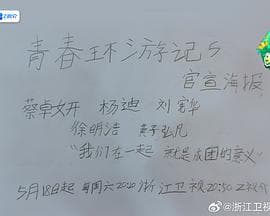 青春环游记5
官宣海报
蔡卓妍 杨迪 刘宪华
徐明浩 黄子弘凡
“我们在一起 就是永团的意义”
5月18日起 每周六20:20 浙江卫视
@浙江卫视